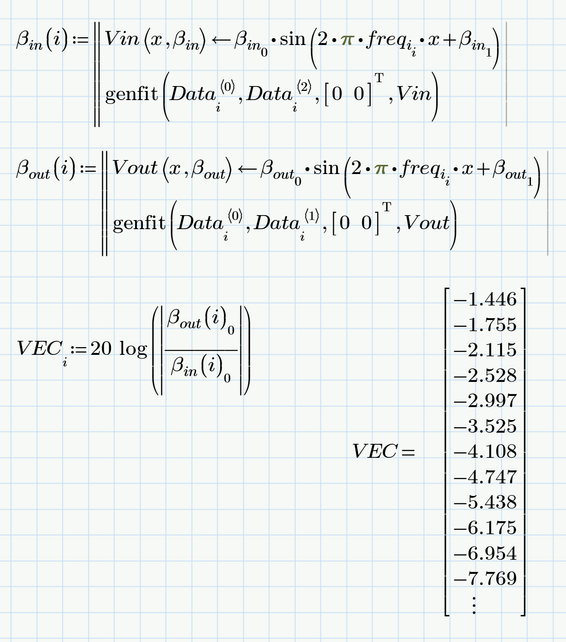 β_in(i):=‖Vin(x,β_in)←β_in_0•sin(2•π•freq_i_i•x+β_in_1)
genfit(Data_i^⟨0⟩,Data_i^⟨2⟩,[0 0]^T,Vin)
β_out(i):=‖Vout(x,β_out)←β_out_0•sin(2•π•freq_i_i•x+β_out_1)
genfit(Data_i^⟨0⟩,Data_i^⟨1⟩,[0 0]^T,Vout)
VEC_i:=20 log(|β_out(i)_0/β_in(i)_0|)
VEC=
−1.446
−1.755
−2.115
−2.528
−2.997
−3.525
−4.108
−4.747
−5.438
−6.175
−6.954
−7.769
⋮